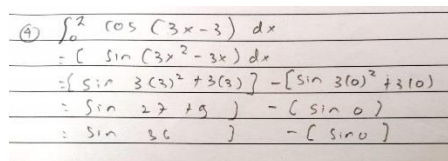 ④ ∫₀² cos (3x-3) dx
= [ sin (3x² - 3x) dx
= [ sin 3(3)² + 3(3) ] - [ sin 3(0)² + 3(0)
= sin 27 + 9 ] - ( sin 0 )
= sin 36 ] - [ sin 0 ]